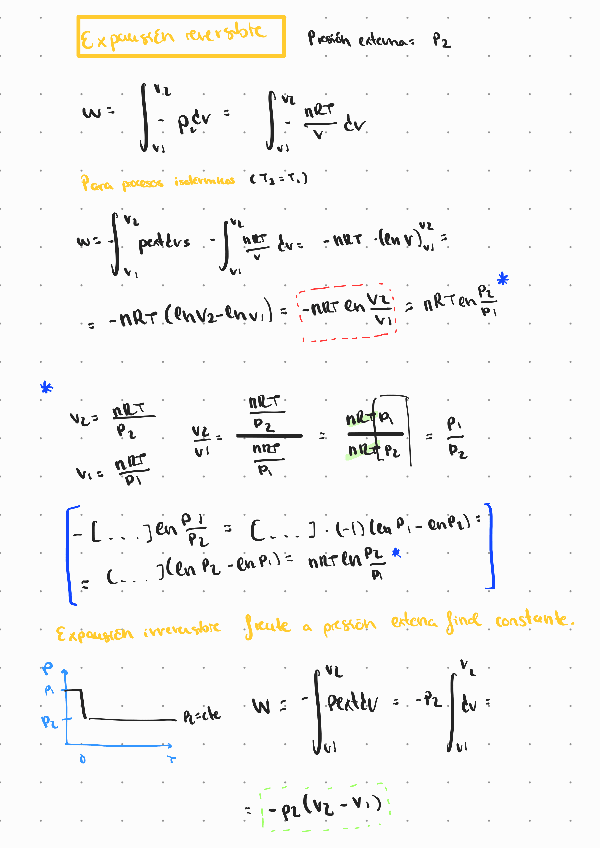 Expansión reversible Presión externa= P2
W= ∫_{V1}^{V2} - P2dv = ∫_{V1}^{V2} - nRT/V dv
Para procesos isotérmicos (T2=T1)
W= -∫_{V1}^{V2} pextdv= -∫_{V1}^{V2} nRT/V dv= -nRT ·(lnV)_{V1}^{V2} =
= -nRT (lnV2-lnV1) = -nRT ln V2/V1 = nRT ln P2/P1 *
*
V2= nRT/P2
V1= nRT/P1
V2/V1 = (nRT/P2)/(nRT/P1) = nRT P1/nRT P2 = P1/P2
-[...]ln P1/P2 = [...] · (-1) (lnP1-lnP2) =
= [...] (lnP2-lnP1)= nRT ln P2/P1 *
Expansión irreversible frente a presión externa final constante.
P
P1
P2
P2=cte
0
T
W = -∫_{V1}^{V2} pextdv = -P2 ∫_{V1}^{V2} dv =
= -P2(V2-V1)